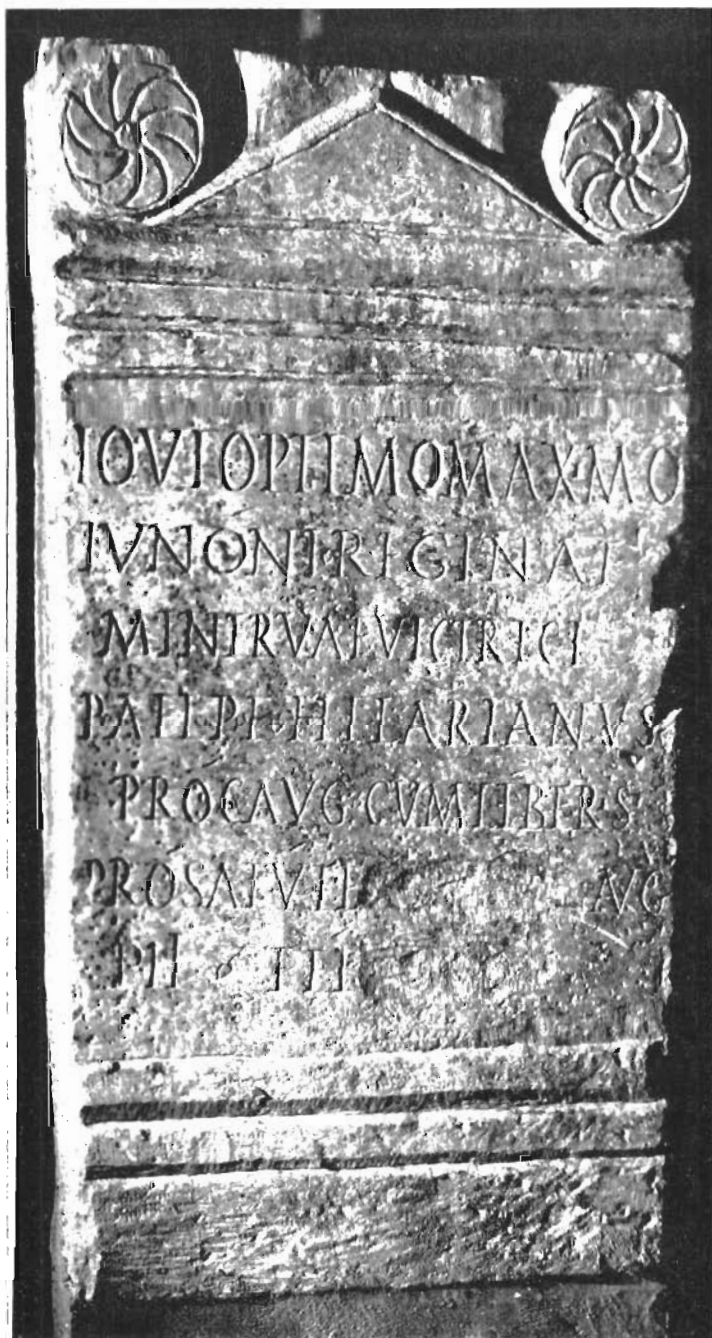 IOVI OPTIMO MAXIMO
IVNONI REGINAE
MINERVAE VICTRICI
P AELI P F HILARIANVS
PROC AVG CVM LIBERIS
PRO SALVTE AVG
PII FEL